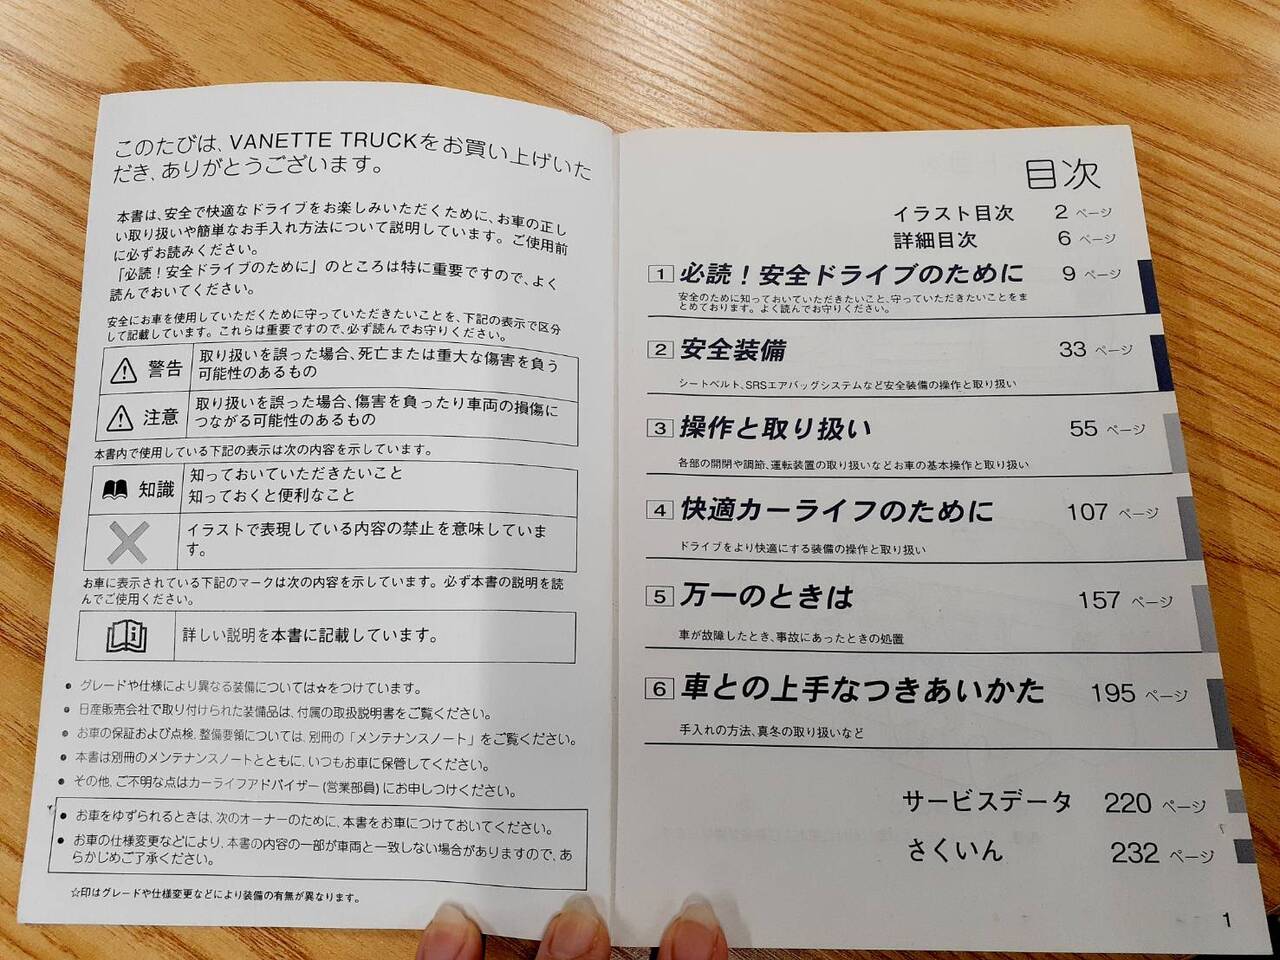 このたびは、VANETTE TRUCKをお買い上げいた
だき、ありがとうございます。
本書は、安全で快適なドライブをお楽しみいただくために、お車の正し
い取り扱いや簡単なお手入れ方法について説明しています。ご使用前
に必ずお読みください。
「必読！安全ドライブのために」のところは特に重要ですので、よく
読んでおいてください。
安全にお車を使用していただくために守っていただきたいことを、下記の表示で区分
して記載しています。これらは重要ですので、必ず読んでお守りください。
警告 取り扱いを誤った場合、死亡または重大な傷害を負う
可能性のあるもの
注意 取り扱いを誤った場合、傷害を負ったり車両の損傷に
つながる可能性のあるもの
本書内で使用している下記の表示は次の内容を示しています。
知識 知っておいていただきたいこと
知っておくと便利なこと
イラストで表現している内容の禁止を意味していま
す。
お車に表示されている下記のマークは次の内容を示しています。必ず本書の説明を読
んでご使用ください。
詳しい説明を本書に記載しています。
● グレードや仕様により異なる装備については☆をつけています。
● 日産販売会社で取り付けられた装備品は、付属の取扱説明書をご覧ください。
● お車の保証および点検、整備要領については、別冊の「メンテナンスノート」をご覧ください。
● 本書は別冊のメンテナンスノートとともに、いつもお車に保管してください。
● その他、ご不明な点はカーライフアドバイザー(営業部員)にお申しつけください。
● お車をゆずられるときは、次のオーナーのために、本書をお車につけておいてください。
● お車の仕様変更などにより、本書の内容の一部が車両と一致しない場合がありますので、あ
らかじめご了承ください。
☆印はグレードや仕様変更などにより装備の有無が異なります。
目次
イラスト目次 2 ページ
詳細目次 6 ページ
1 必読！安全ドライブのために 9 ページ
安全のために知っておいていただきたいこと、守っていただきたいことをま
とめております。よく読んでお守りください。
2 安全装備 33 ページ
シートベルト、SRSエアバッグシステムなど安全装備の操作と取り扱い
3 操作と取り扱い 55 ページ
各部の開閉や調節、運転装置の取り扱いなどお車の基本操作と取り扱い
4 快適カーライフのために 107 ページ
ドライブをより快適にする装備の操作と取り扱い
5 万一のときは 157 ページ
車が故障したとき、事故にあったときの処置
6 車との上手なつきあいかた 195 ページ
手入れの方法、真冬の取り扱いなど
サービスデータ 220 ページ
さくいん 232 ページ
1